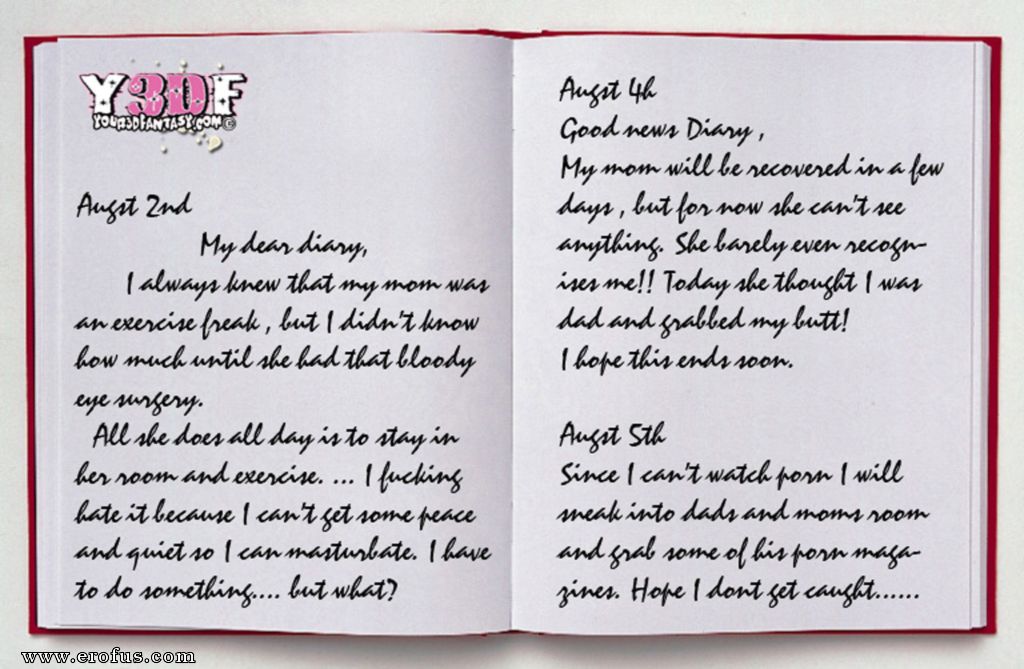 Y3DF
YOUR3DFANTASY.COM©
Augst 2nd
My dear diary,
I always knew that my mom was
an exercise freak , but I didn't know
how much until she had that bloody
eye surgery.
All she does all day is to stay in
her room and exercise. ... I fucking
hate it because I can't get some peace
and quiet so I can masturbate. I have
to do something.... but what?
Augst 4h
Good news Diary ,
My mom will be recovered in a few
days , but for now she can't see
anything. She barely even recogn-
ises me!! Today she thought I was
dad and grabbed my butt!
I hope this ends soon.
Augst 5th
Since I can't watch porn I will
sneak into dads and moms room
and grab some of his porn maga-
zines. Hope I dont get caught......
www.erofus.com